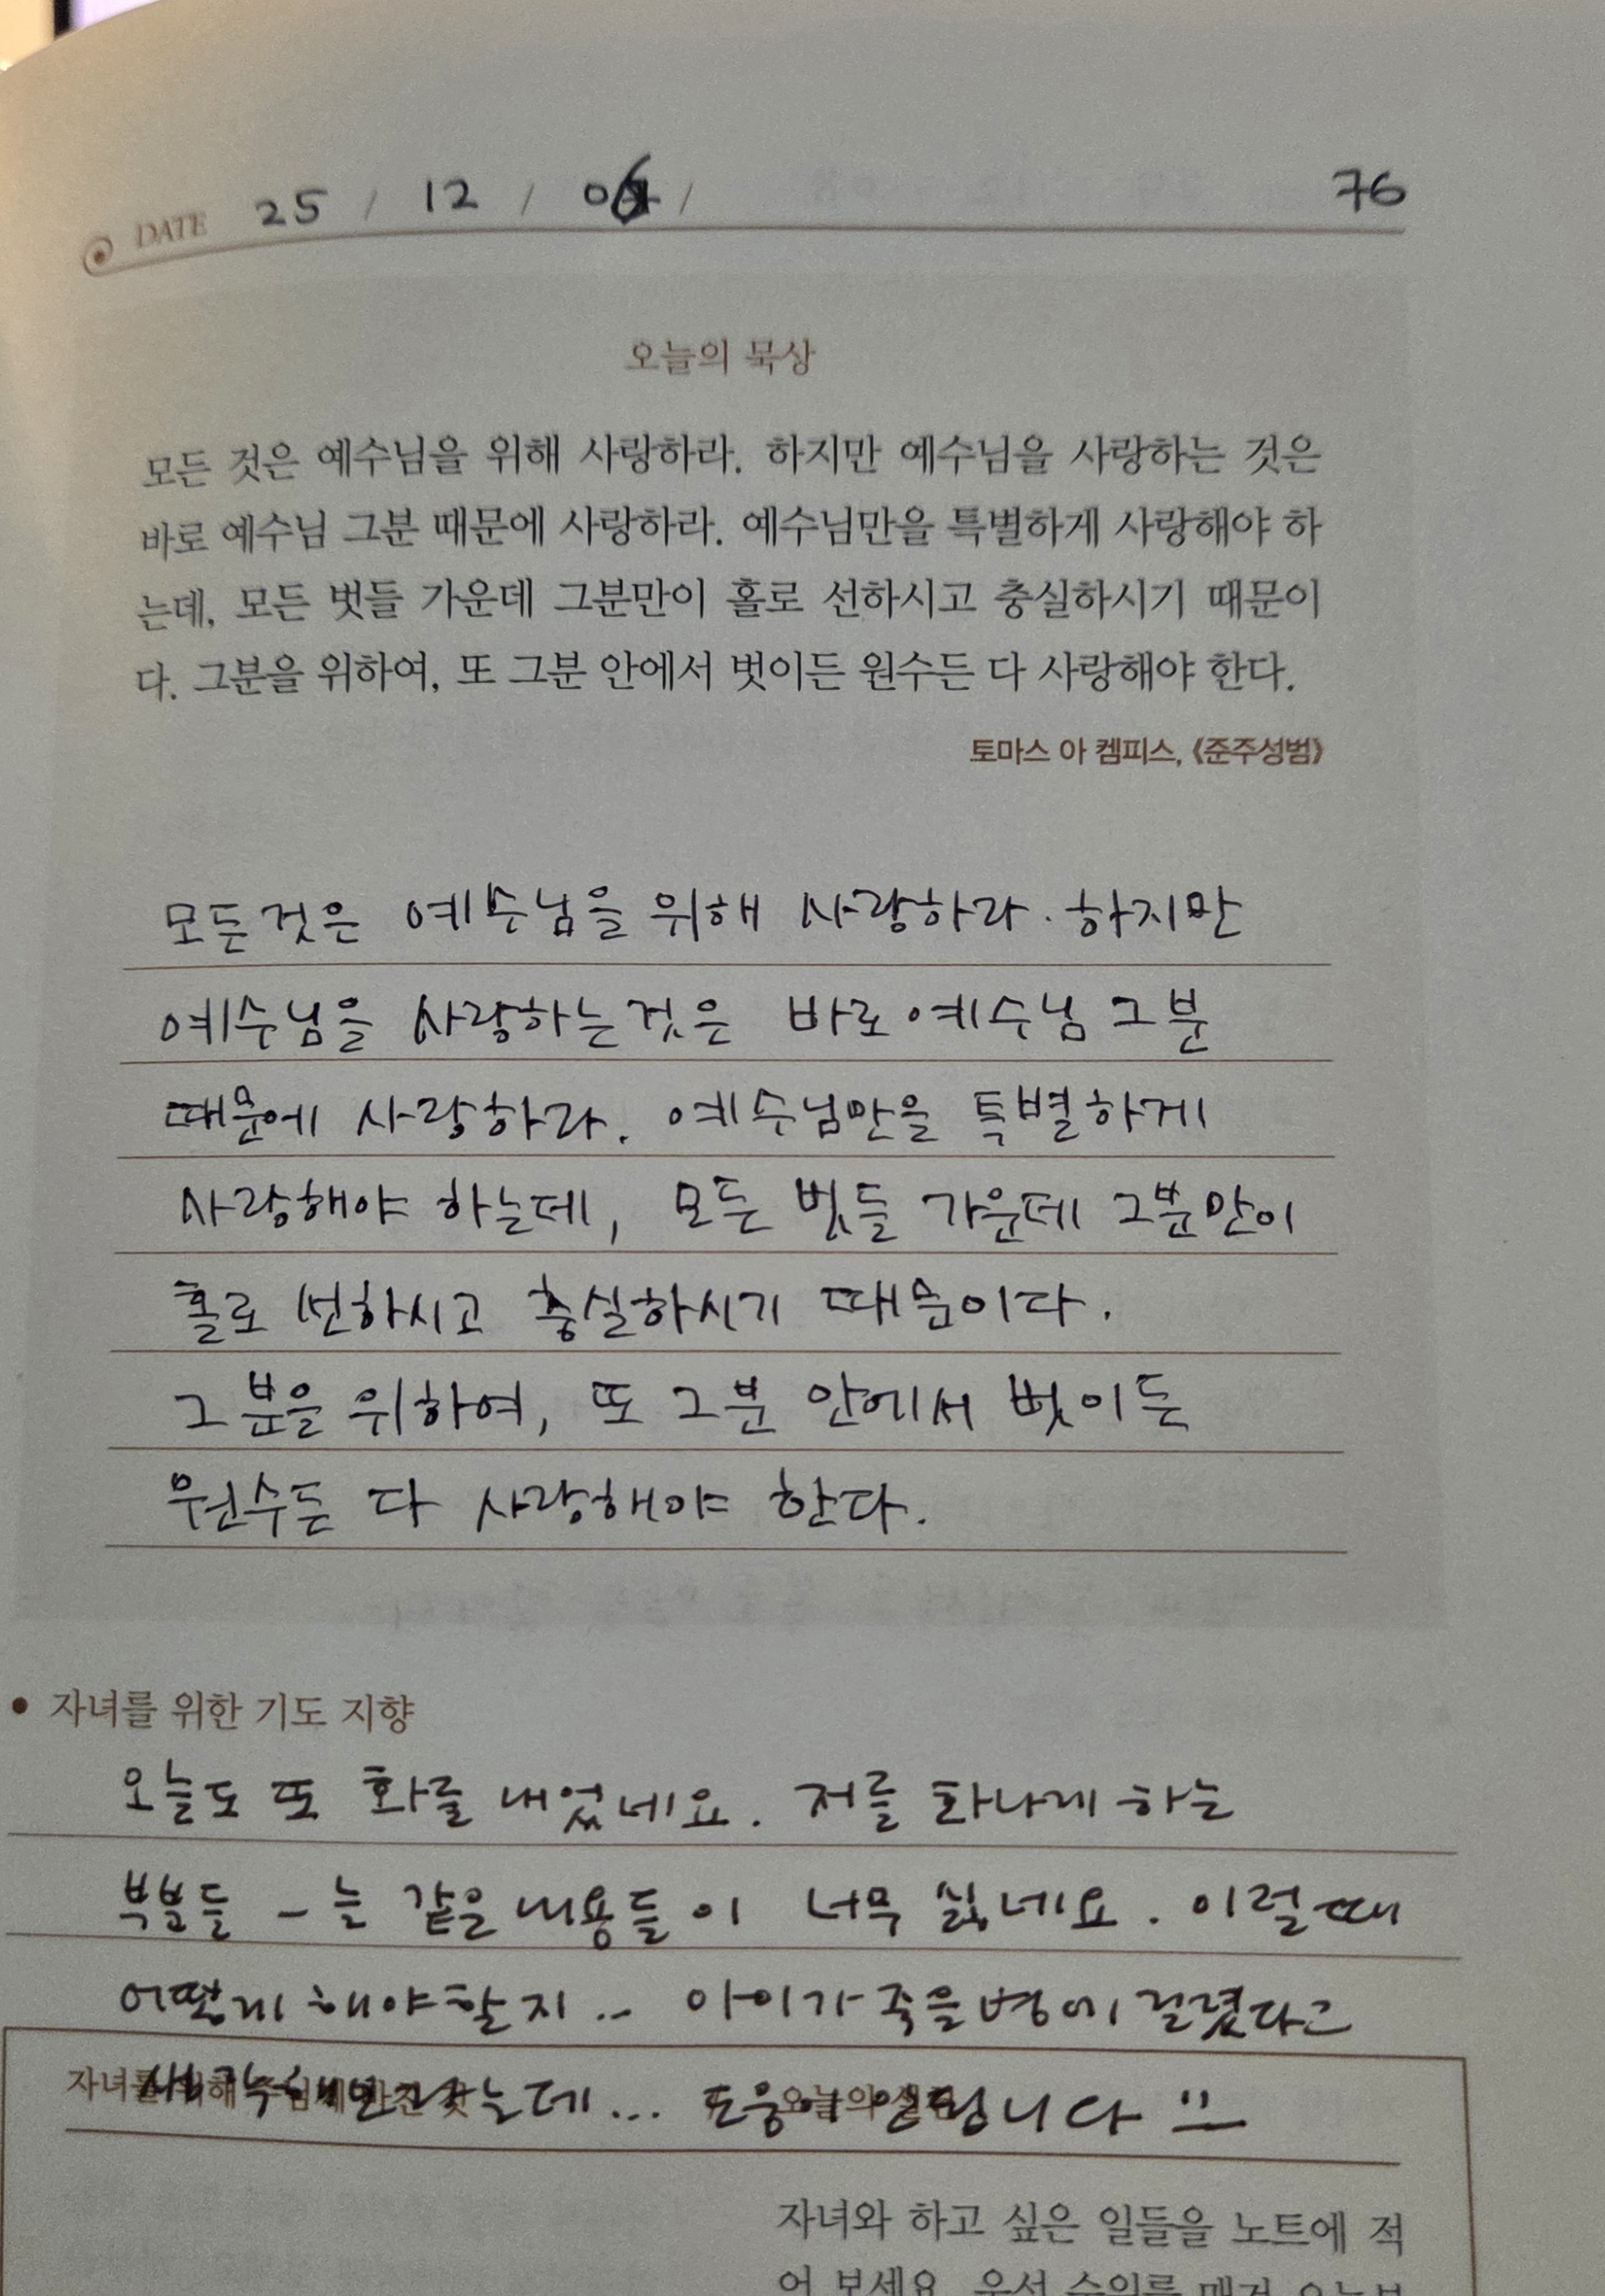 DATE 25 / 12 / 06 / 76
오늘의 묵상
모든 것은 예수님을 위해 사랑하라. 하지만 예수님을 사랑하는 것은
바로 예수님 그분 때문에 사랑하라. 예수님만을 특별하게 사랑해야 하
는데, 모든 벗들 가운데 그분만이 홀로 선하시고 충실하시기 때문이
다. 그분을 위하여, 또 그분 안에서 벗이든 원수든 다 사랑해야 한다.
토마스 아 켐피스, 《준주성범》
모든것은 예수님을 위해 사랑하라. 하지만
예수님을 사랑하는것은 바로 예수님 그분
때문에 사랑하라. 예수님만을 특별하게
사랑해야 하는데, 모든 벗들 가운데 그분만이
홀로 선하시고 충실하시기 때문이다.
그분을 위하여, 또 그분 안에서 벗이든
원수든 다 사랑해야 한다.
• 자녀를 위한 기도 지향
오늘도 또 화를 내었네요. 저를 화나게 하는
부분들 - 늘 같은 내용들이 너무 싫네요. 이럴때
어떻게 해야할지.. 아이가 죽을병에 걸렸다고
생각해보라는데... 도움이 안됩니다
자녀와 하고 싶은 일들을 노트에 적
어 보세요. 우선 순위를 매겨